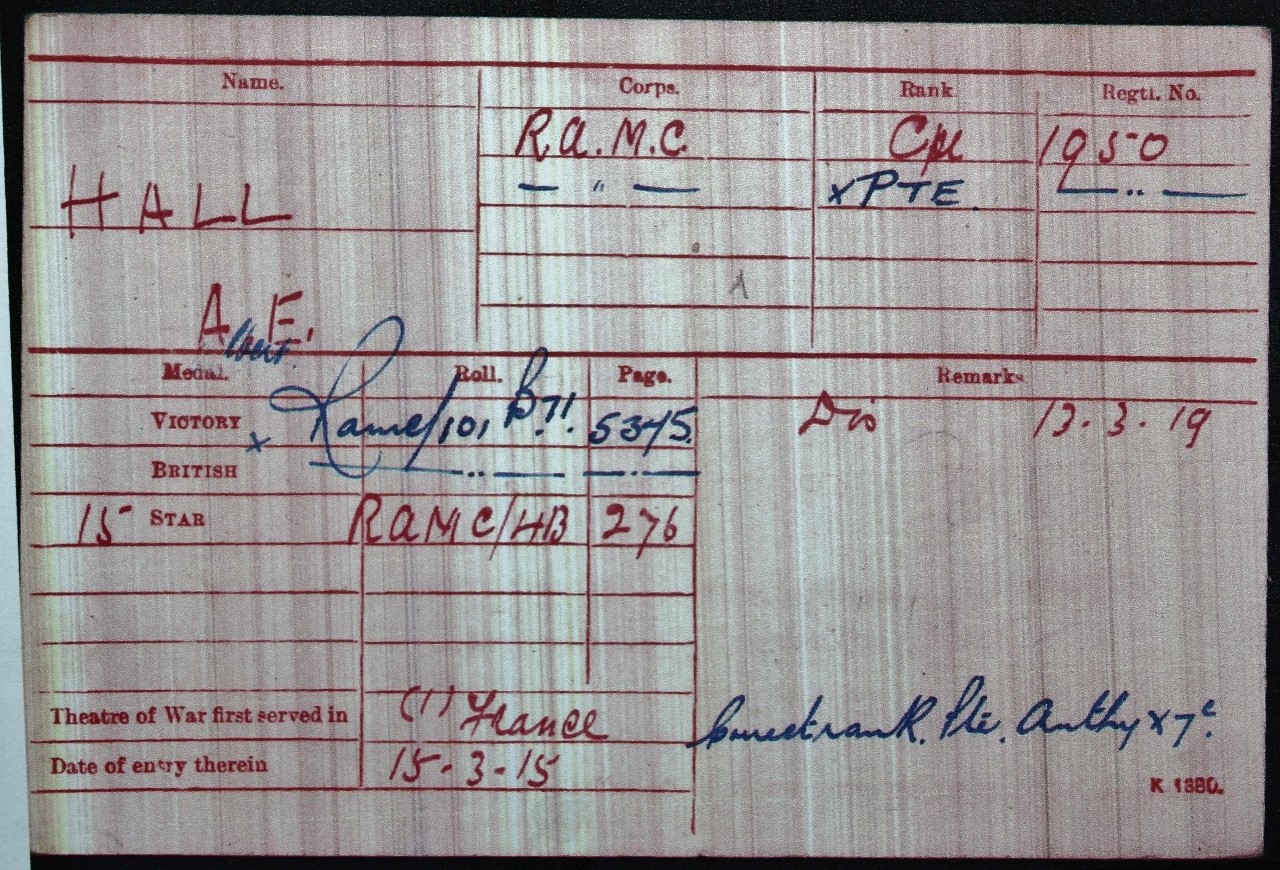 Name. Corps. Rank Regtl. No.
R.A.M.C. Cpl 1950
HALL — " — x PTE. — " —
A E.
lbert.
Medal. Roll. Page. Remarks
VICTORY x Ramc/101 B71. 5345. Dis 13.3.19
BRITISH — " — — " —
15 STAR RAMC/4B 276
Theatre of War first served in (1) France
Correct rank. Pte. Authy x 7c.
Date of entry therein 15-3-15
K 1380.